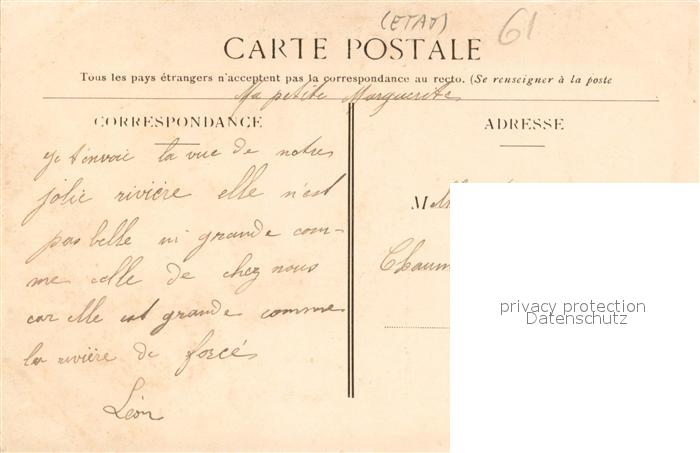 (ETAT)
61
CARTE POSTALE
Tous les pays étrangers n'acceptent pas la correspondance au recto. (Se renseigner à la poste
Ma petite Marguerite
CORRESPONDANCE
Je t'envoie la vue de notre
jolie rivière elle n'est
pas belle ni grande com-
me celle de chez nous
car elle est grande comme
la rivière de forcés
Léon
ADRESSE
M
Chaum
privacy protection
Datenschutz